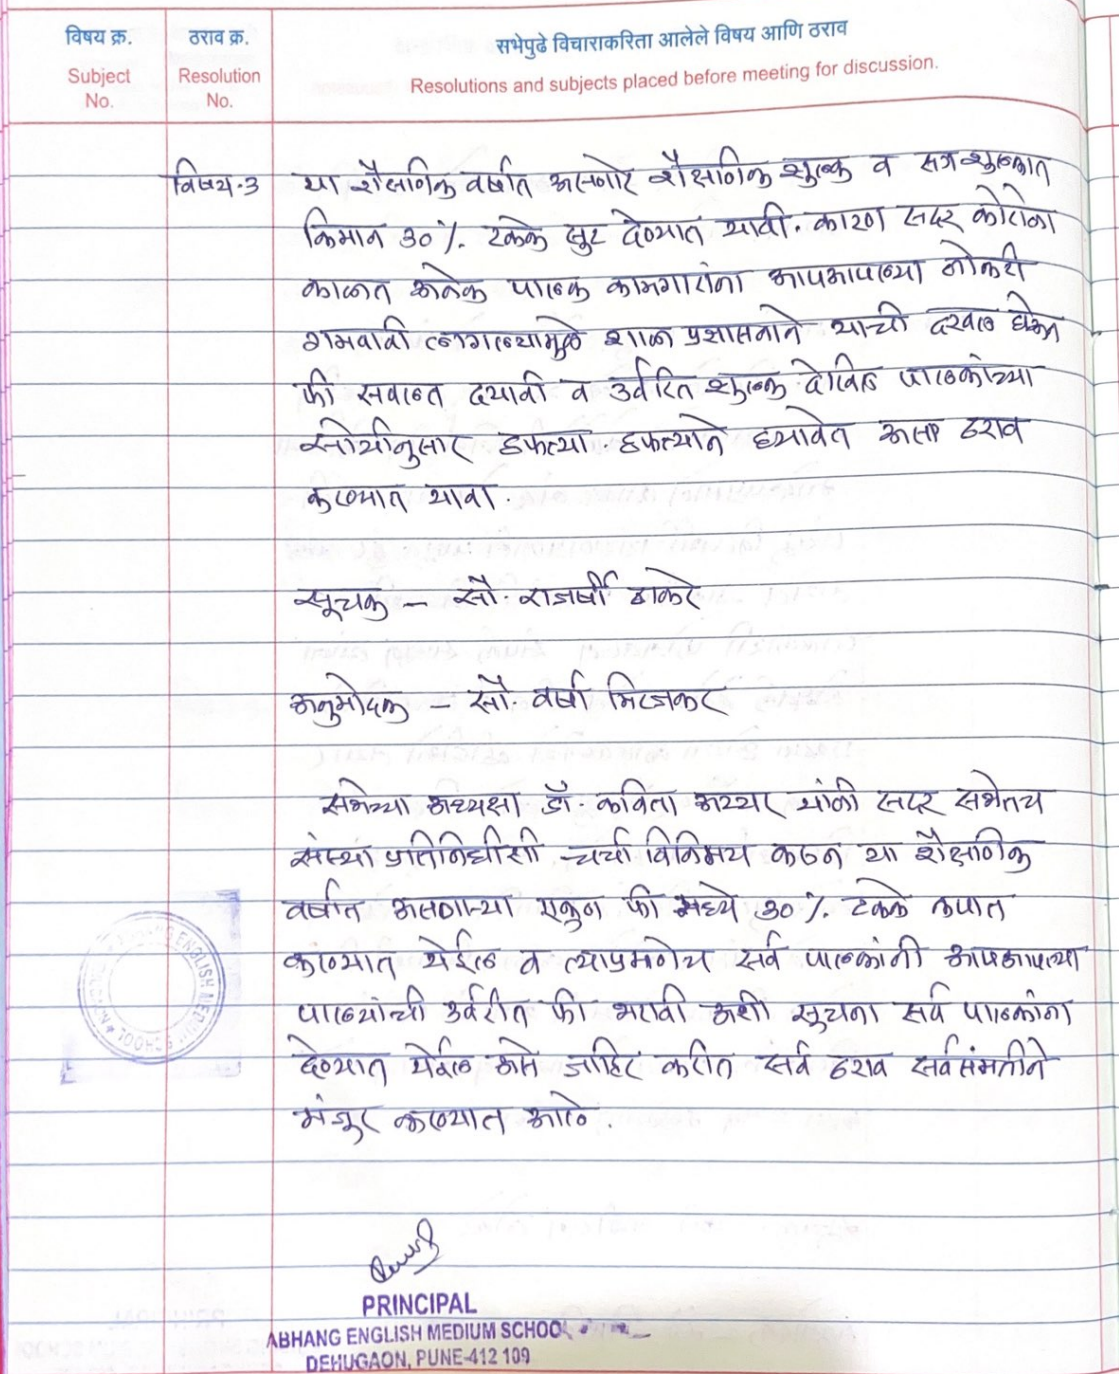 विषय क्र. ठराव क्र. सभेपुढे विचाराकरिता आलेले विषय आणि ठराव
Subject No. Resolution No. Resolutions and subjects placed before meeting for discussion.
विषय-3 या शैक्षणिक वर्षात असणारे शैक्षणिक शुल्क व सत्र शुल्कात
किमान 30 %. टक्के सुट देण्यात यावी. कारण सदर कोरोना
काळात अनेक पालक कामगारांना आपआपल्या नोकरी
गमवावी लागल्यामुळे शाळा प्रशासनाने याची दखल घेऊन
फी सवलत दयावी व उर्वरित शुल्क देखिल पालकांच्या
सोयीनुसार हफत्या-हफत्याने घ्यावेत असा ठराव
करण्यात यावा.
सूचक - सौ. राजर्षी ठाकरे
अनुमोदक - सौ. वर्षा मिरजकर
सभेच्या अध्यक्षा डॉ. कविता अय्यर यांनी सदर सभेतच
संस्था प्रतिनिधींशी चर्चा विनिमय करुन या शैक्षणिक
वर्षात असणाऱ्या एकुण फी मध्ये 30 %. टक्के कपात
करण्यात येईल व त्याप्रमाणेच सर्व पालकांनी आपआपल्या
पाल्यांची उर्वरीत फी भरावी अशी सुचना सर्व पालकांना
देण्यात येईल असे जाहिर करीत सर्व ठराव सर्वसंमतीने
मंजुर करण्यात आले.
PRINCIPAL
ABHANG ENGLISH MEDIUM SCHOOL
DEHUGAON, PUNE-412 109